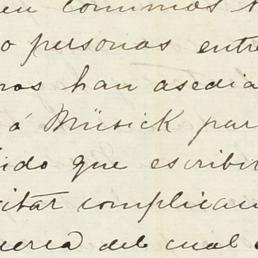 en commos t
o personas entre
ros han asedia
á Müsick par
ido que escribir
itar complican
uerea del cual e